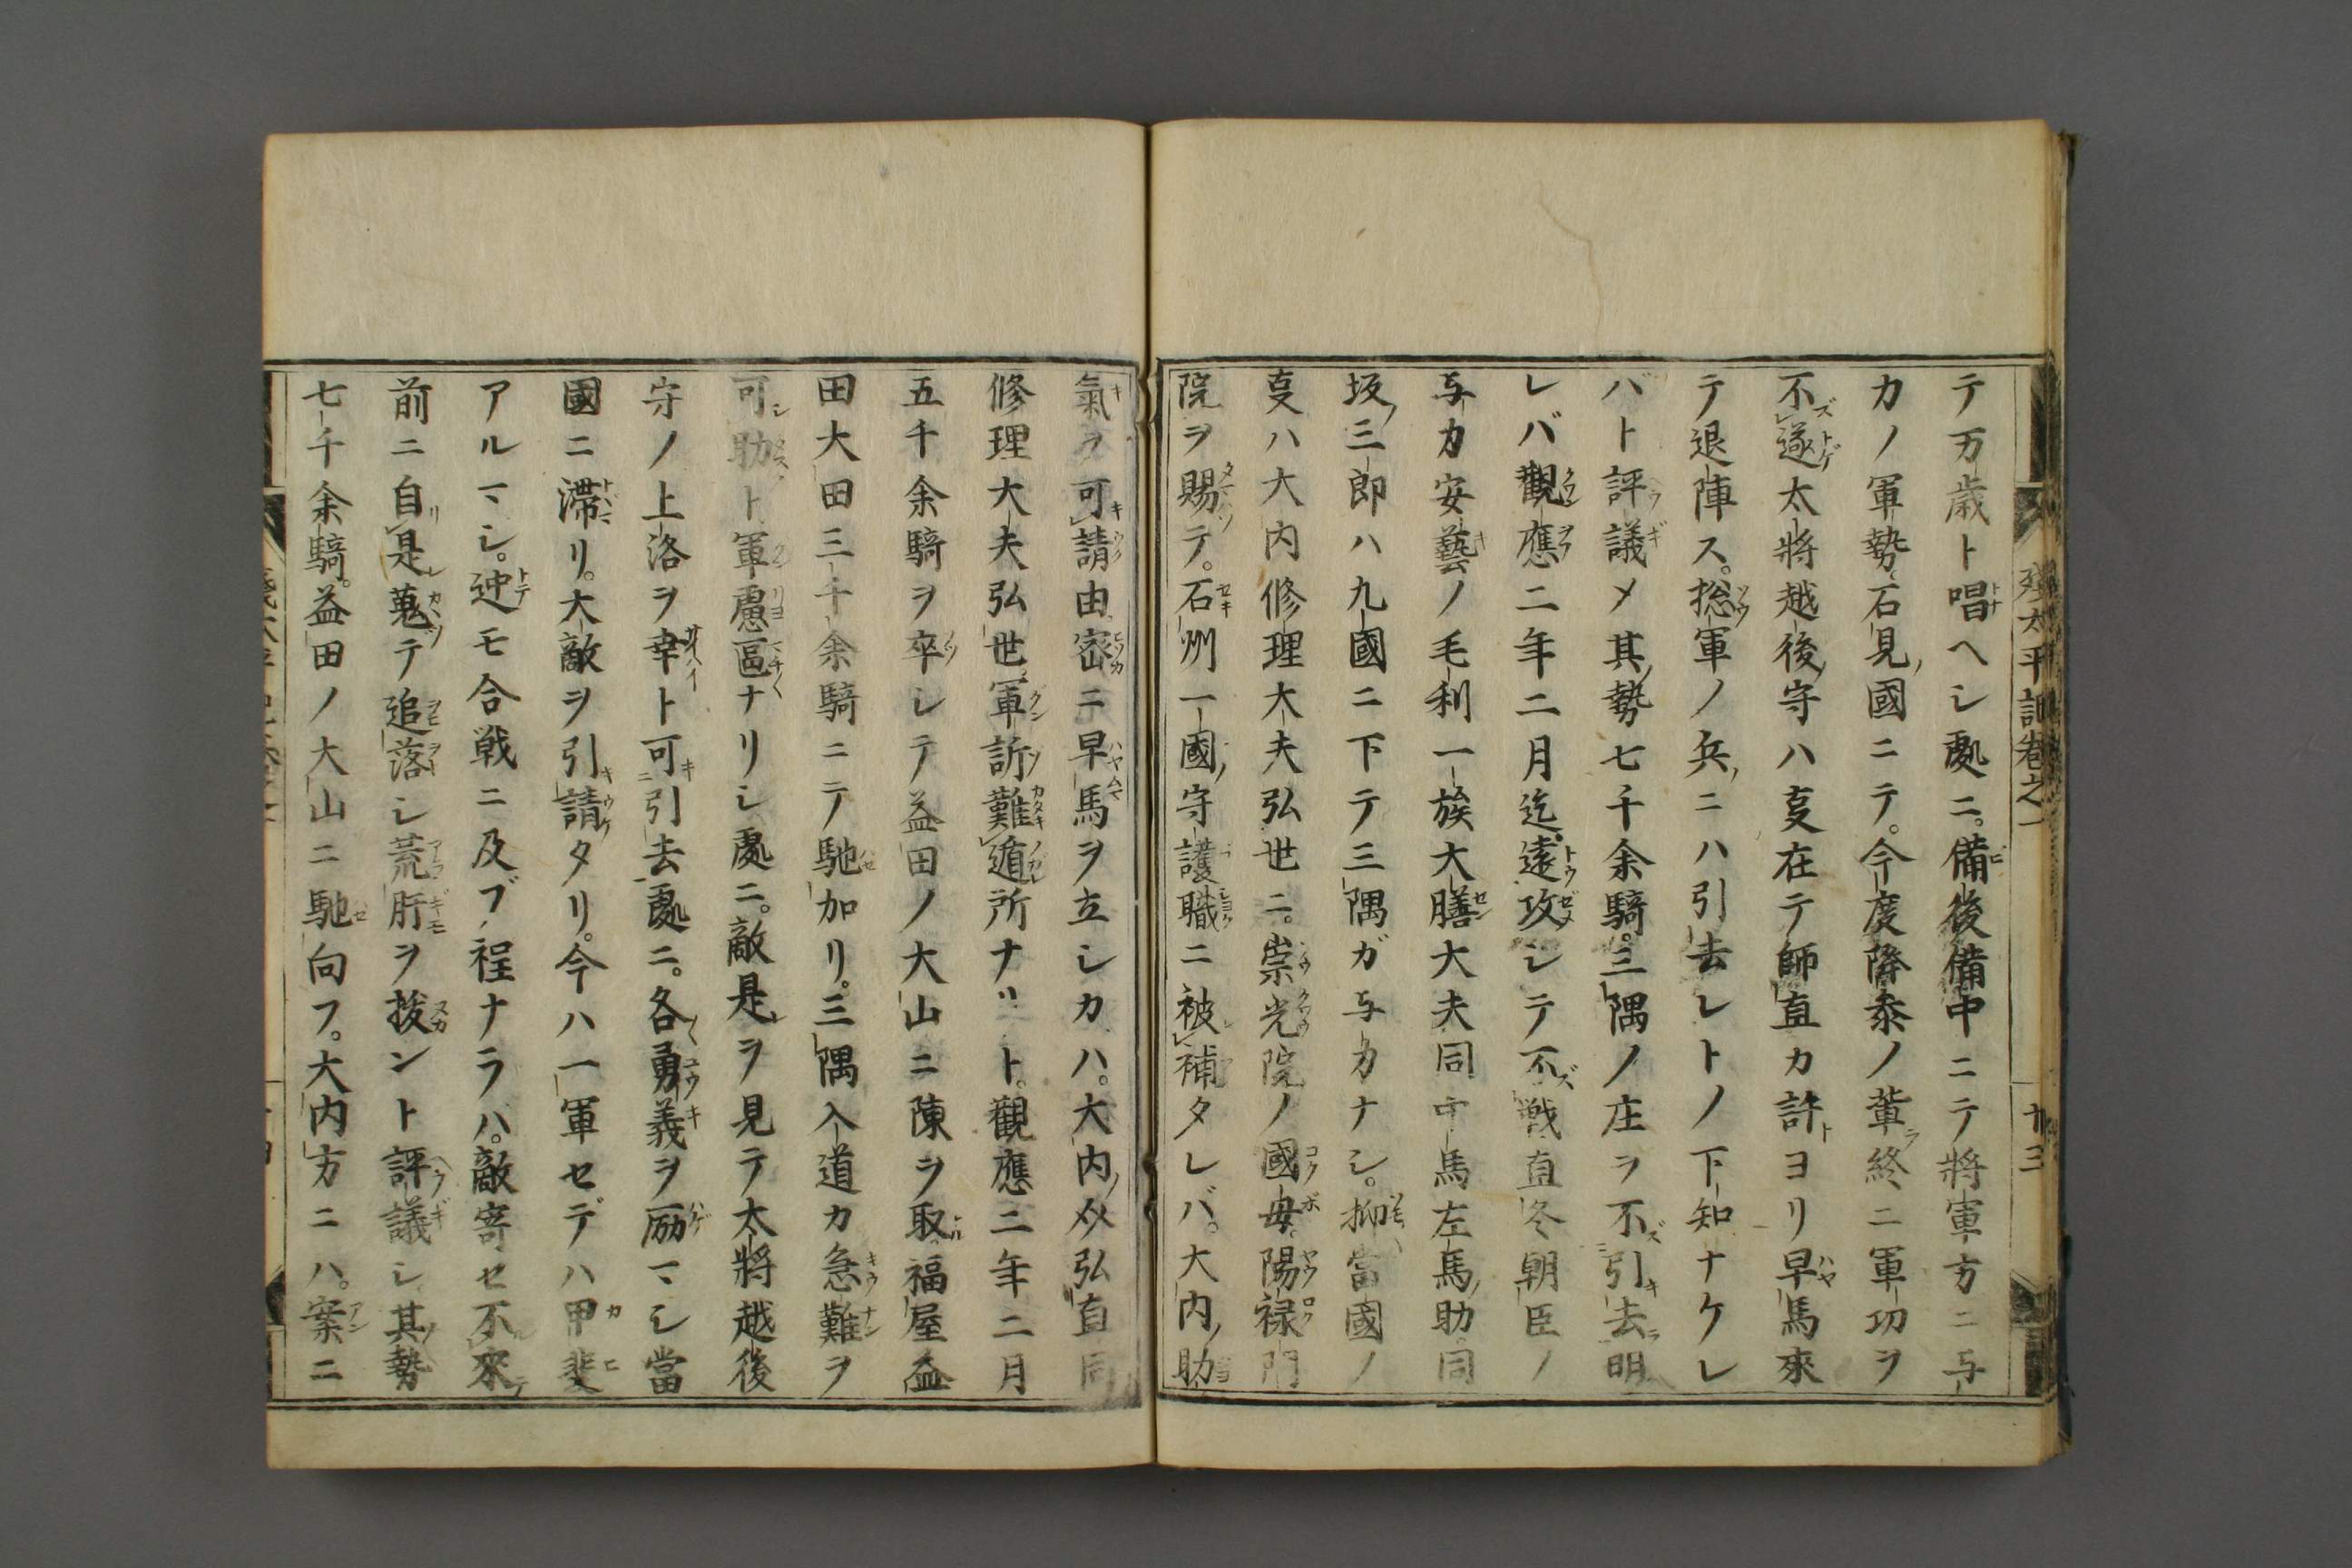 残太平記巻之一
十三
テ万歳ト唱ヘシ處ニ。備後備中ニテ將軍方ニ与
カノ軍勢石見國ニテ。今度降参ノ輩終ニ軍功ヲ
不遂太將越後守ハ㕝在テ師直カ許ヨリ早馬來
テ退陣ス。総軍ノ兵ニハ引去レトノ下知ナケレ
バト評議メ其勢七千余騎三隅ノ庄ヲ不引去明
レバ觀應二年二月迄遠攻シテ不戦直冬朝臣ノ
与力安藝ノ毛利一族大膳大夫同中馬左馬助同
坂三郎ハ九國ニ下テ三隅ガ与力ナシ。抑當國ノ
㕝ハ大内修理大夫弘世ニ。崇光院ノ國母陽禄門
院ヲ賜テ。石州一國守護職ニ被補タレバ。大内助
氣ヲ可請由密ニ早馬ヲ立シカハ。大内弘直同
修理大夫弘世軍訴難遁所ナリト。觀應二年二月
五千余騎ヲ卒シテ益田ノ大山ニ陳ヲ取福屋益
田大田三千余騎ニテ馳加リ。三隅入道カ急難ヲ
可助ト軍慮區ナリシ處ニ。敵是ヲ見テ太將越後
守ノ上洛ヲ幸ト可引去處ニ。各勇義ヲ励マシ當
國ニ滞リ。大敵ヲ引請タリ。今ハ一軍セデハ甲斐
アルマシ。迚モ合戦ニ及ブ程ナラハ。敵寄セ不來
前ニ自是蒐テ追落シ荒肝ヲ拔ント評議シ其勢
七千余騎。益田ノ大山ニ馳向フ。大内方ニハ。案ニ